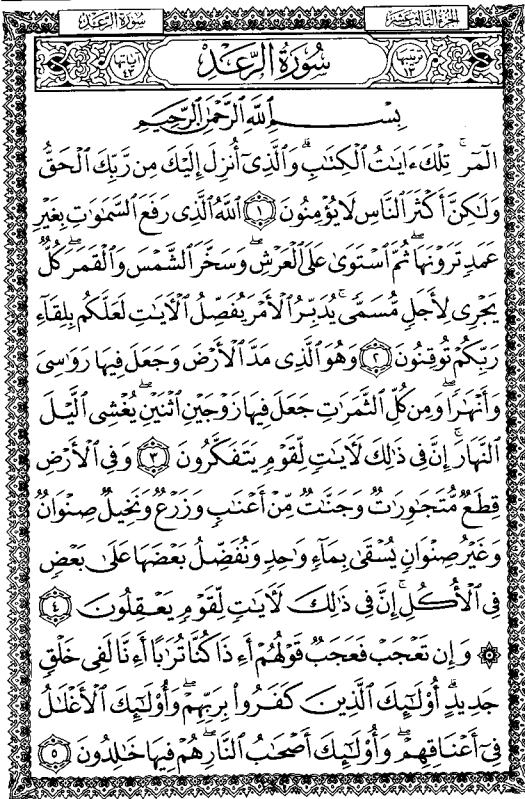 الجزء الثالث عشر
سورة الرعد
ترتيبها ١٣
سُورَةُ الرَّعْدِ
آياتها ٤٣
بِسْمِ ٱللَّهِ ٱلرَّحْمَٰنِ ٱلرَّحِيمِ
الٓمٓر ۚ تِلْكَ ءَايَٰتُ ٱلْكِتَٰبِ ۗ وَٱلَّذِىٓ أُنزِلَ إِلَيْكَ مِن رَّبِّكَ ٱلْحَقُّ
وَلَٰكِنَّ أَكْثَرَ ٱلنَّاسِ لَا يُؤْمِنُونَ ١ ٱللَّهُ ٱلَّذِى رَفَعَ ٱلسَّمَٰوَٰتِ بِغَيْرِ
عَمَدٍ تَرَوْنَهَا ۖ ثُمَّ ٱسْتَوَىٰ عَلَى ٱلْعَرْشِ ۖ وَسَخَّرَ ٱلشَّمْسَ وَٱلْقَمَرَ ۖ كُلٌّ
يَجْرِى لِأَجَلٍ مُّسَمًّى ۚ يُدَبِّرُ ٱلْأَمْرَ يُفَصِّلُ ٱلْءَايَٰتِ لَعَلَّكُم بِلِقَآءِ
رَبِّكُمْ تُوقِنُونَ ٢ وَهُوَ ٱلَّذِى مَدَّ ٱلْأَرْضَ وَجَعَلَ فِيهَا رَوَٰسِىَ
وَأَنْهَٰرًا ۖ وَمِن كُلِّ ٱلثَّمَرَٰتِ جَعَلَ فِيهَا زَوْجَيْنِ ٱثْنَيْنِ ۖ يُغْشِى ٱلَّيْلَ
ٱلنَّهَارَ ۚ إِنَّ فِى ذَٰلِكَ لَءَايَٰتٍ لِّقَوْمٍ يَتَفَكَّرُونَ ٣ وَفِى ٱلْأَرْضِ
قِطَعٌ مُّتَجَٰوِرَٰتٌ وَجَنَّٰتٌ مِّنْ أَعْنَٰبٍ وَزَرْعٌ وَنَخِيلٌ صِنْوَانٌ
وَغَيْرُ صِنْوَانٍ يُسْقَىٰ بِمَآءٍ وَٰحِدٍ وَنُفَضِّلُ بَعْضَهَا عَلَىٰ بَعْضٍ
فِى ٱلْأُكُلِ ۚ إِنَّ فِى ذَٰلِكَ لَءَايَٰتٍ لِّقَوْمٍ يَعْقِلُونَ ٤
۞ وَإِن تَعْجَبْ فَعَجَبٌ قَوْلُهُمْ أَءِذَا كُنَّا تُرَٰبًا أَءِنَّا لَفِى خَلْقٍ
جَدِيدٍ ۗ أُو۟لَٰٓئِكَ ٱلَّذِينَ كَفَرُوا۟ بِرَبِّهِمْ ۖ وَأُو۟لَٰٓئِكَ ٱلْأَغْلَٰلُ
فِىٓ أَعْنَاقِهِمْ ۖ وَأُو۟لَٰٓئِكَ أَصْحَٰبُ ٱلنَّارِ ۖ هُمْ فِيهَا خَٰلِدُونَ ٥